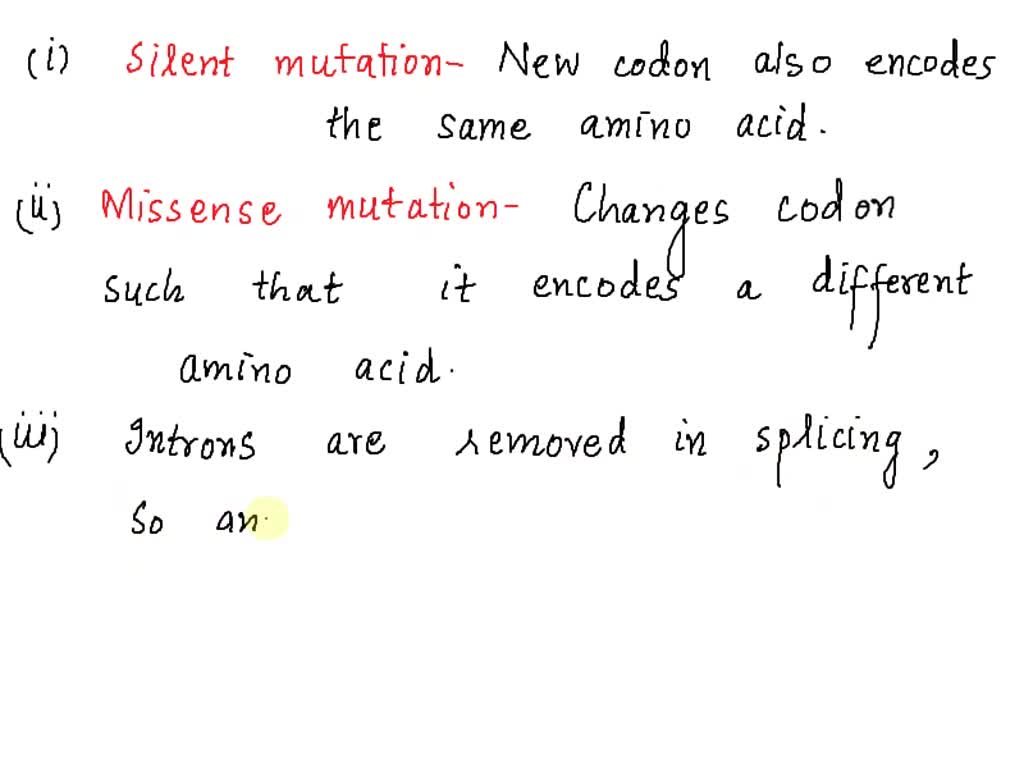 (i) Silent mutation- New codon also encodes
the same amino acid.
(ii) Missense mutation- Changes codon
such that it encodes a different
amino acid.
(iii) Introns are removed in splicing,
So an